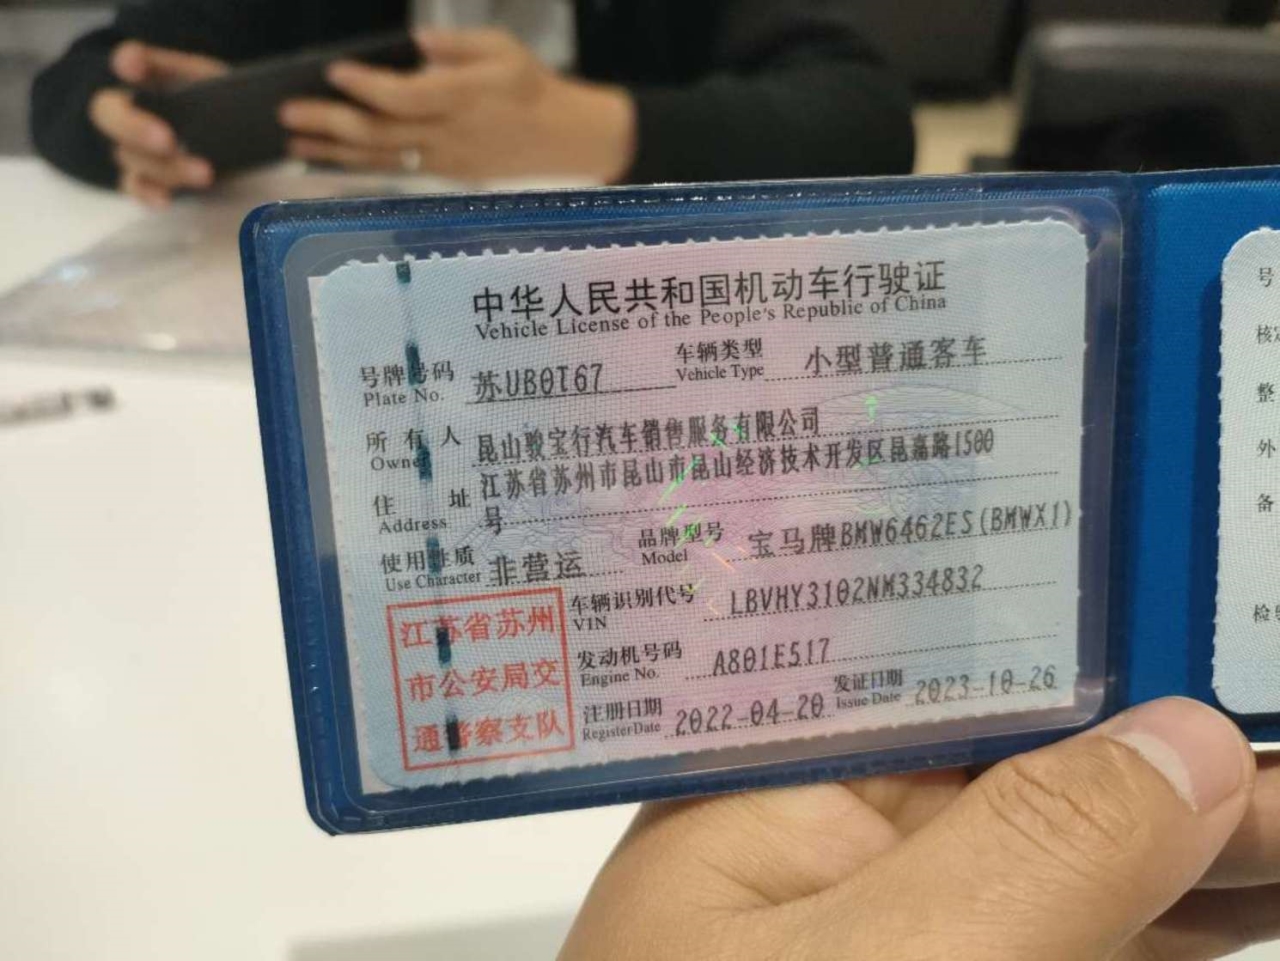 中华人民共和国机动车行驶证
Vehicle License of the People's Republic of China
号牌号码 苏UB0T67 车辆类型 小型普通客车
Plate No. Vehicle Type
所有人 昆山骏宝行汽车销售服务有限公司
Owner
住址 江苏省苏州市昆山市昆山经济技术开发区昆嘉路1500
Address 号
使用性质 非营运 品牌型号 宝马牌BMW6462ES(BMWX1)
Use Character Model
车辆识别代号 LBVHY3102NM334832
VIN
发动机号码 A801E517
Engine No.
注册日期 2022-04-20 发证日期 2023-10-26
Register Date Issue Date
江苏省苏州
市公安局交
通警察支队
号
核定
整
外
备
检